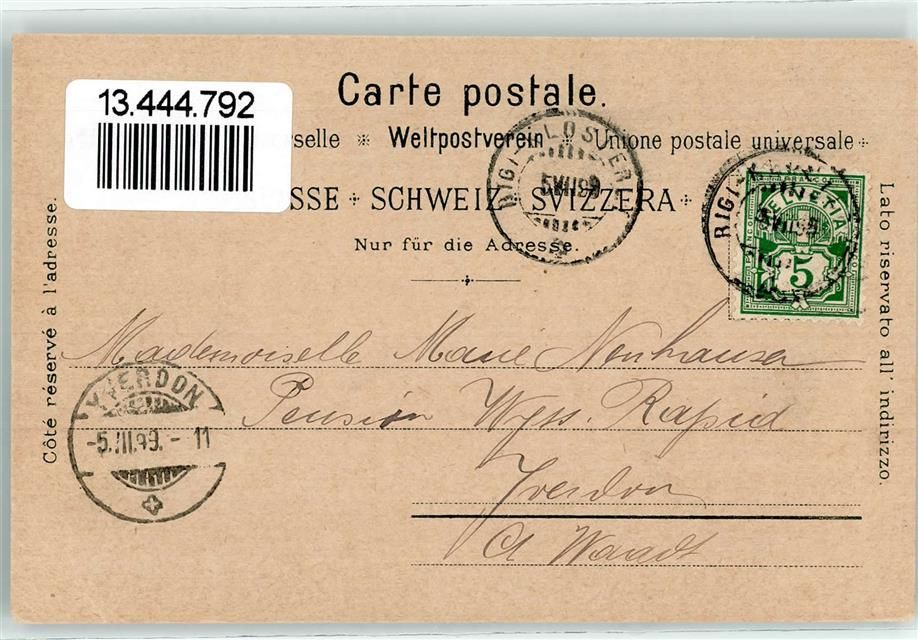 13.444.792
Carte postale.
selle ※ Weltpostverein ※ Unione postale universale
SSE + SCHWEIZ SVIZZERA +
Nur für die Adresse.
Côté réservé à l'adresse.
Lato riservato all' indirizzo.
RIGI-KLÖSTERLI
5 VII 99
RIGI
HELVETIA
VII 99
5
YVERDON
-5.VII.99. - 11
Mademoiselle Marie Neuhauser
Pension Wyss. Rapid
Yverdon
Ct Waadt